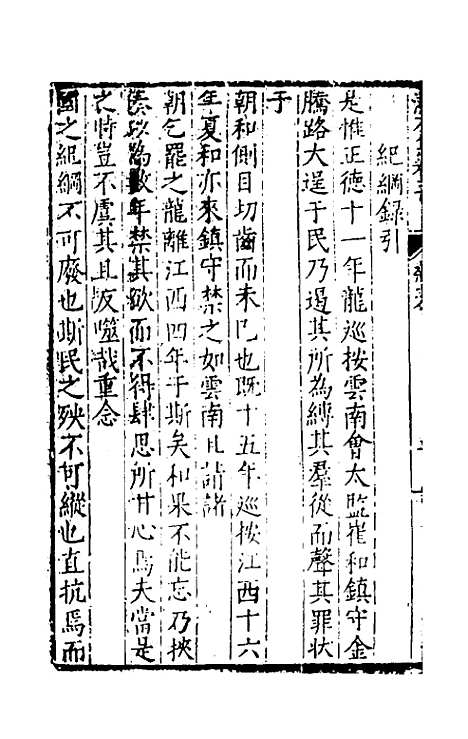 紀綱錄引
是惟正德十一年龍巡按雲南會太監崔和鎮守金
騰路大逞于民乃遏其所為縛其羣從而聲其罪狀
于
朝和側目切齒而未已也既十五年巡按江西十六
年夏和亦來鎮守禁之如雲南且請諸
朝乞罷之龍離江西四年于斯矣和果不能忘乃挾
以為數年禁其欲而不得肆思所甘心焉夫當是
之時豈不虞其且反噬哉重念
國之紀綱不可廢也斯民之殃不可縱也直抗焉而